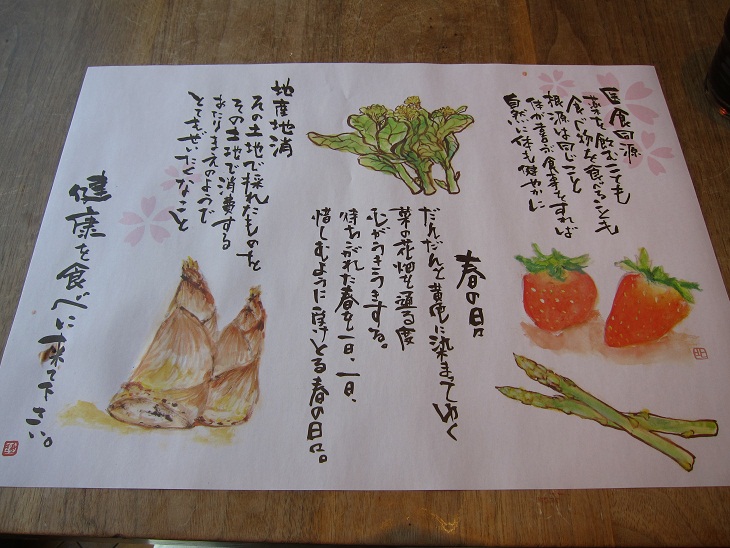 医食同源
薬を飲むことも
食べ物を食べることも
根源は同じこと
体が喜ぶ食事をすれば
自然に体も健やかに
春の日々
だんだんと黄色に染まってゆく
菜の花畑を通る度
心がうきうきする。
待ちこがれた春を一日、一日、
惜しむように届けとる春の日々。
地産地消
その土地で採れたものを
その土地で消費する
あたりまえのようで
とてもぜいたくなこと
健康を食べに来て下さい。